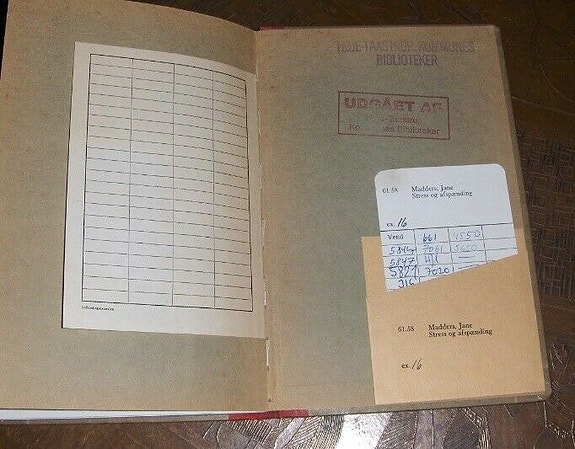 HØJE-TAASTRUP KOMMUNES
BIBLIOTEKER
UDGÅET AF
Biblioteker
61.58 Madders, Jane
Stress og afspænding
ex. 16
Vend 661 4550
7061 3650
5847
5827 7020
316
61.58 Madders, Jane
Stress og afspænding
ex. 16